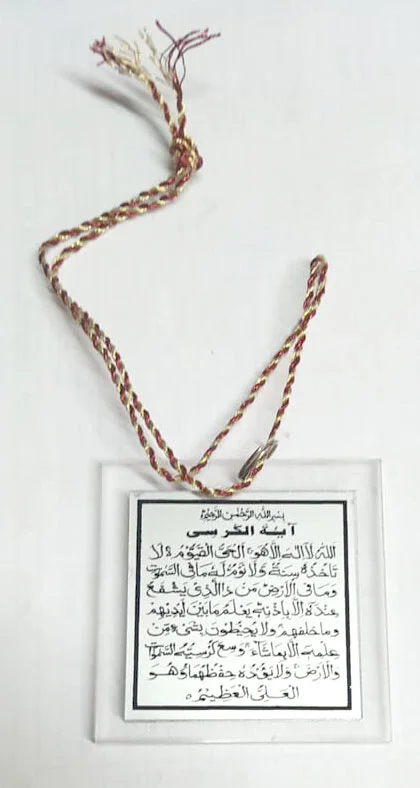 بسم الله الرحمن الرحيم
آية الكرسي
الله لا اله الا هو الحي القيوم لا
تاخذه سنة ولا نوم له ما في السموت
وما في الارض من ذا الذي يشفع
عنده الا باذنه يعلم ما بين ايديهم
وما خلفهم ولا يحيطون بشيء من
علمه الا بما شاء وسع كرسيه السموت
والارض ولا يؤده حفظهما وهو
العلي العظيم